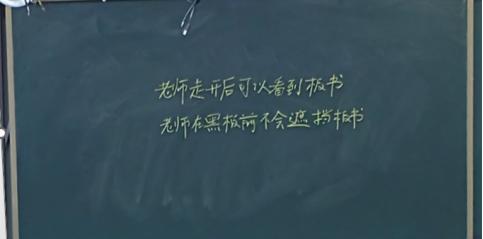 老师走开后可以看到板书
老师在黑板前不会遮挡板书